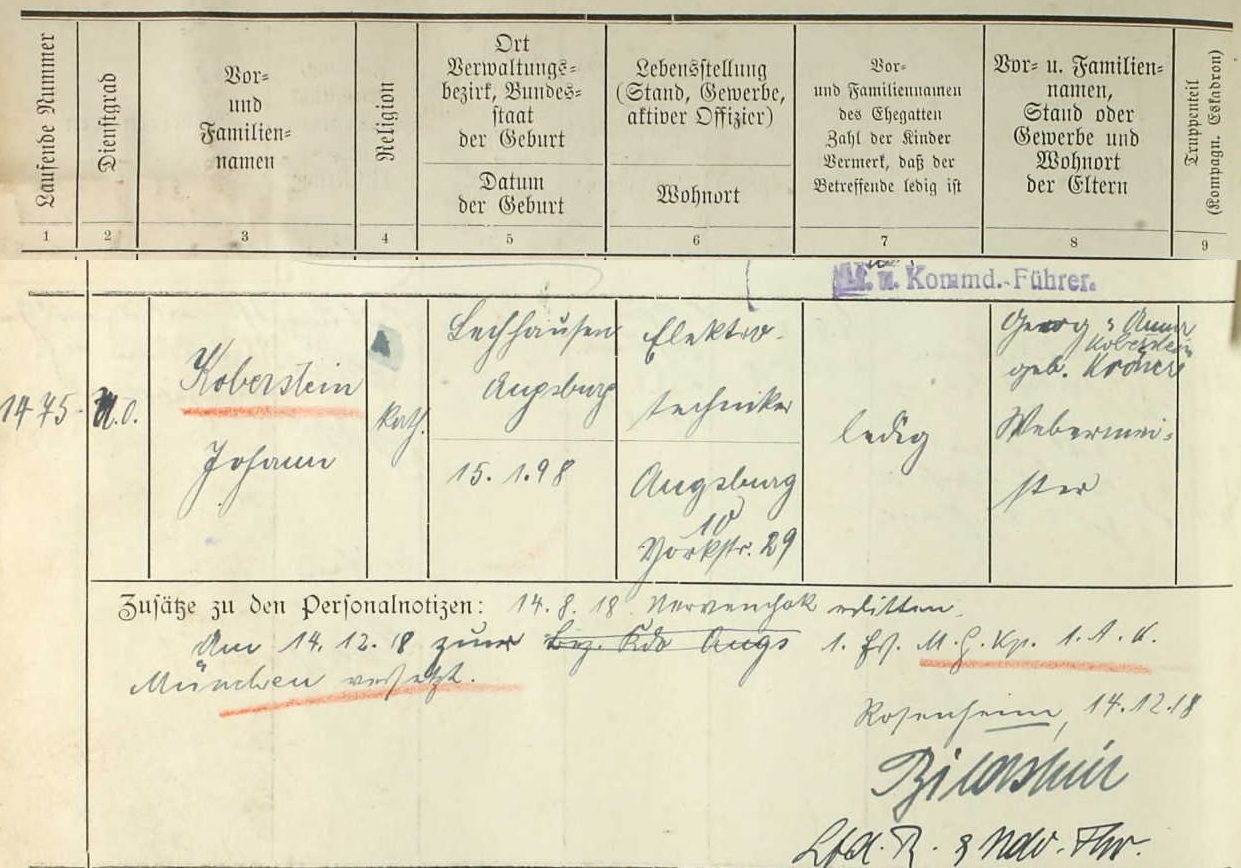 Laufende Nummer
Dienstgrad
Vor-
und
Familien-
namen
Religion
Ort
Verwaltungs-
bezirk, Bundes-
staat
der Geburt
Datum
der Geburt
Lebensstellung
(Stand, Gewerbe,
aktiver Offizier)
Wohnort
Vor-
und Familiennamen
des Ehegatten
Zahl der Kinder
Vermerk, daß der
Betreffende ledig ist
Vor- u. Familien-
namen,
Stand oder
Gewerbe und
Wohnort
der Eltern
Truppenteil
(Kompagn. Eskadron)
1 2 3 4 5 6 7 8 9
Lt. u. Kommd.-Führer.
1475
U.O.
Koberstein
Johann
kath.
Lechhausen
Augsburg
15. 1. 98
Elektro-
techniker
Augsburg
10
Yorkstr. 29
ledig
Georg & Anna
Koberstein
geb.
Webermei-
ster
Zusätze zu den Personalnotizen: 14. 8. 18 Nervenchok erlitten.
Am 14. 12. 18 zur Bez. Kdo Augs 1. Ers. M. G. Kp. 1. A. K.
München versetzt.
Rosenheim, 14.12.18
Lt. d. R. &